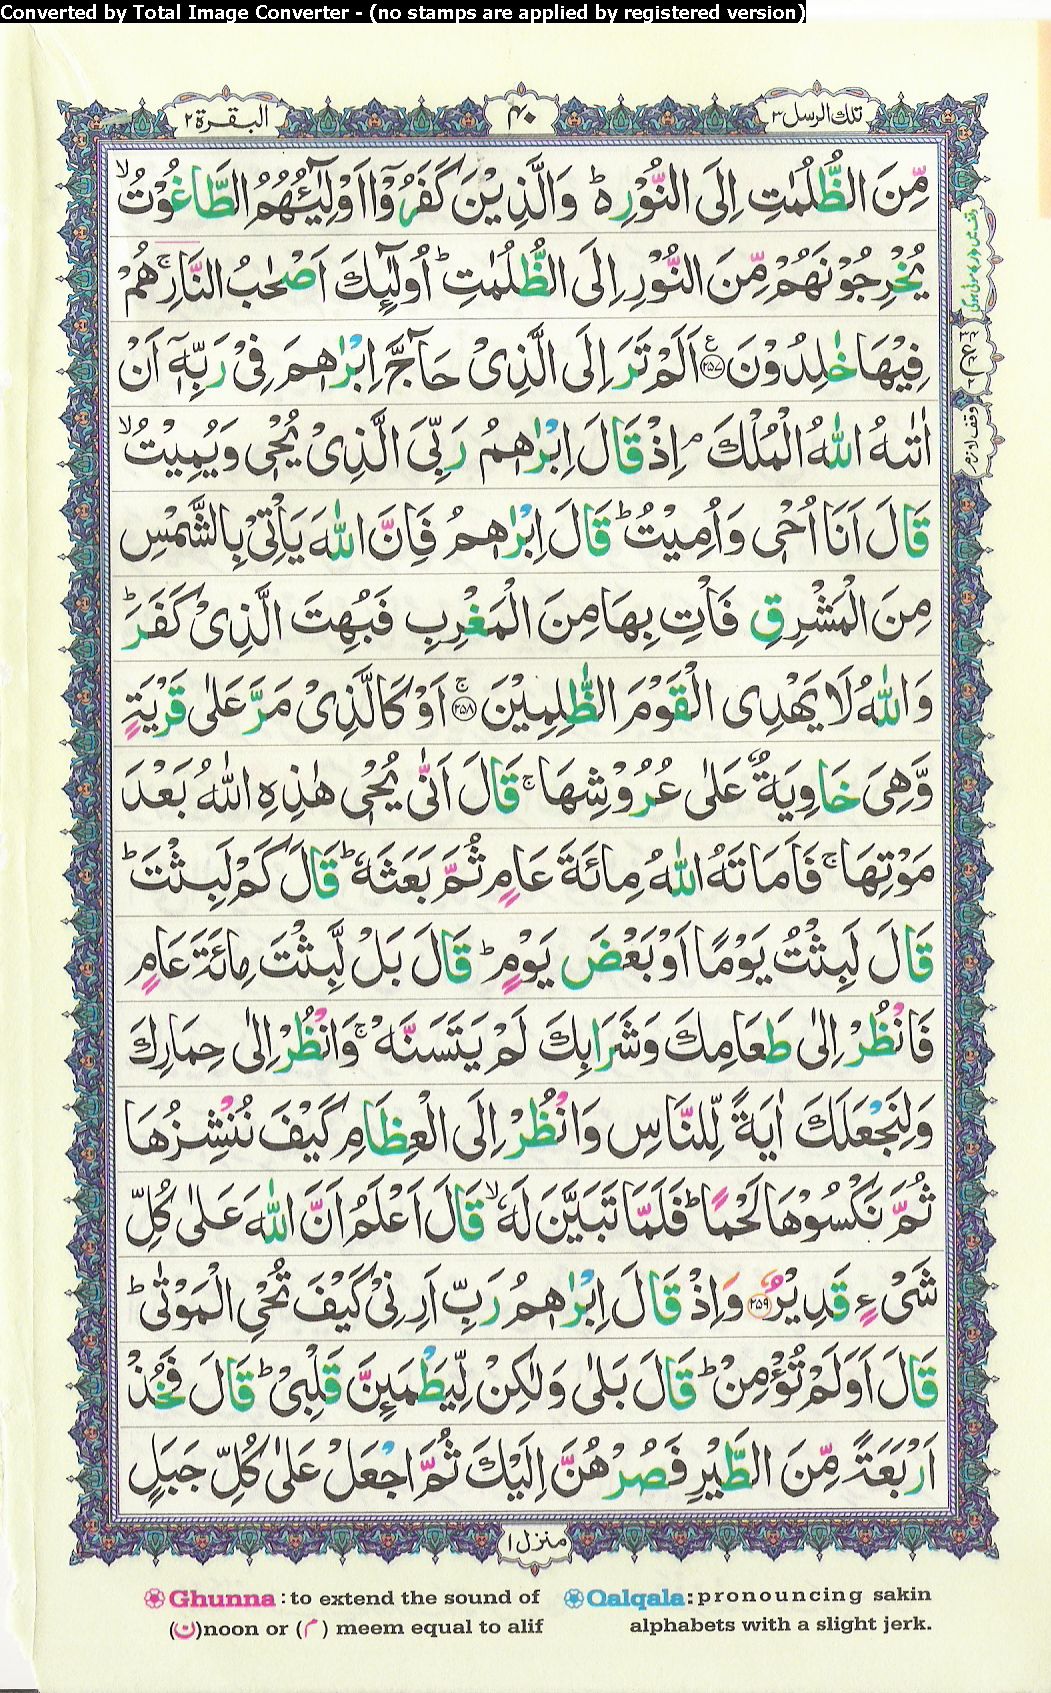 Converted by Total Image Converter - (no stamps are applied by registered version)
تلك الرسل ٣
٤٠
البقرة ٢
مِّنَ الظُّلُمٰتِ اِلَى النُّوْرِ ؕ۬ وَالَّذِيْنَ كَفَرُوْۤا اَوْلِيٰٓـُٔهُمُ الطَّاغُوْتُ ۙ
يُخْرِجُوْنَهُمْ مِّنَ النُّوْرِ اِلَى الظُّلُمٰتِ ؕ اُولٰٓئِكَ اَصْحٰبُ النَّارِ ۚ هُمْ
فِيْهَا خٰلِدُوْنَ ﴿۲۵۷﴾ اَلَمْ تَرَ اِلَى الَّذِىْ حَآجَّ اِبْرٰهٖمَ فِىْ رَبِّهٖۤ اَنْ
اٰتٰٮهُ اللّٰهُ الْمُلْكَ ۘ اِذْ قَالَ اِبْرٰهٖمُ رَبِّىَ الَّذِىْ يُحْىٖ وَيُمِيْتُ ۙ
قَالَ اَنَا اُحْىٖ وَاُمِيْتُ ؕ قَالَ اِبْرٰهٖمُ فَاِنَّ اللّٰهَ يَاْتِىْ بِالشَّمْسِ
مِنَ الْمَشْرِقِ فَاْتِ بِهَا مِنَ الْمَغْرِبِ فَبُهِتَ الَّذِىْ كَفَرَ ؕ
وَاللّٰهُ لَا يَهْدِى الْقَوْمَ الظّٰلِمِيْنَ ﴿۲۵۸﴾ ۚ اَوْ كَالَّذِىْ مَرَّ عَلٰى قَرْيَةٍ
وَّهِىَ خَاوِيَةٌ عَلٰى عُرُوْشِهَا ۚ قَالَ اَنّٰى يُحْىٖ هٰذِهِ اللّٰهُ بَعْدَ
مَوْتِهَا ۚ فَاَمَاتَهُ اللّٰهُ مِائَةَ عَامٍ ثُمَّ بَعَثَهٗ ؕ قَالَ كَمْ لَبِثْتَ ؕ
قَالَ لَبِثْتُ يَوْمًا اَوْ بَعْضَ يَوْمٍ ؕ قَالَ بَلْ لَّبِثْتَ مِائَةَ عَامٍ
فَانْظُرْ اِلٰى طَعَامِكَ وَشَرَابِكَ لَمْ يَتَسَنَّهْ ۚ وَانْظُرْ اِلٰى حِمَارِكَ
وَلِنَجْعَلَكَ اٰيَةً لِّلنَّاسِ وَانْظُرْ اِلَى الْعِظَامِ كَيْفَ نُنْشِزُهَا
ثُمَّ نَكْسُوْهَا لَحْمًا ؕ فَلَمَّا تَبَيَّنَ لَهٗ ۙ قَالَ اَعْلَمُ اَنَّ اللّٰهَ عَلٰى كُلِّ
شَىْءٍ قَدِيْرٌ ﴿۲۵۹﴾ وَاِذْ قَالَ اِبْرٰهٖمُ رَبِّ اَرِنِىْ كَيْفَ تُحْىِ الْمَوْتٰى ؕ
قَالَ اَوَلَمْ تُؤْمِنْ ؕ قَالَ بَلٰى وَلٰكِنْ لِّيَطْمَئِنَّ قَلْبِىْ ؕ قَالَ فَخُذْ
اَرْبَعَةً مِّنَ الطَّيْرِ فَصُرْهُنَّ اِلَيْكَ ثُمَّ اجْعَلْ عَلٰى كُلِّ جَبَلٍ
وقف لازم
منزل ١
Ghunna : to extend the sound of
(ن)noon or (م) meem equal to alif
Qalqala: pronouncing sakin
alphabets with a slight jerk.